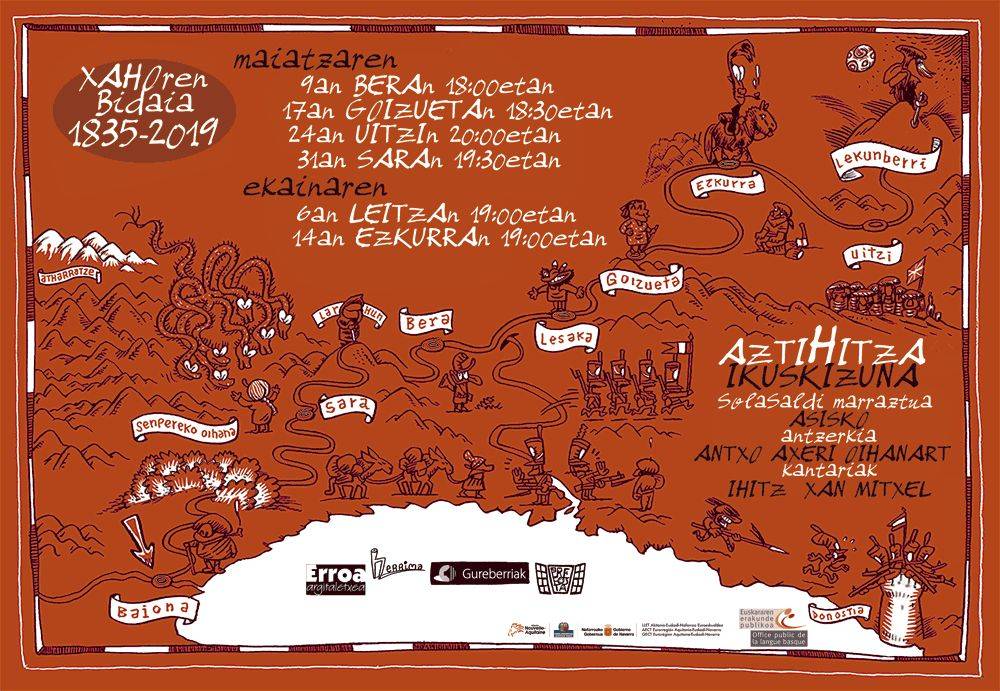 XAHOren
Bidaia
1835-2019
maiatzaren
9an BERAn 18:00etan
17an GOIZUETAn 18:30etan
24an UITZIn 20:00etan
31an SARAn 19:30etan
ekainaren
6an LEITZAn 19:00etan
14an EZKURRAn 19:00etan
Lekunberri
EZKURRA
uitzi
ATHARRATZE
Goizueta
LARHUN
Bera
Lesaka
Sara
Senpereko oihana
AZTIHITZA
IKUSKIZUNA
Solasaldi marraztua
ASISKO
antzerkia
ANTXO AXERI OIHANART
kantariak
IHITZ XAN MITXEL
Baiona
Donostia
Erroa
argitaletxea
Herrima
Gureberriak
Nouvelle-
Aquitaine
Nafarroako Gobierno
Gobernua de Navarra
Euskararen
erakunde
publikoa
Office public de
la langue basque